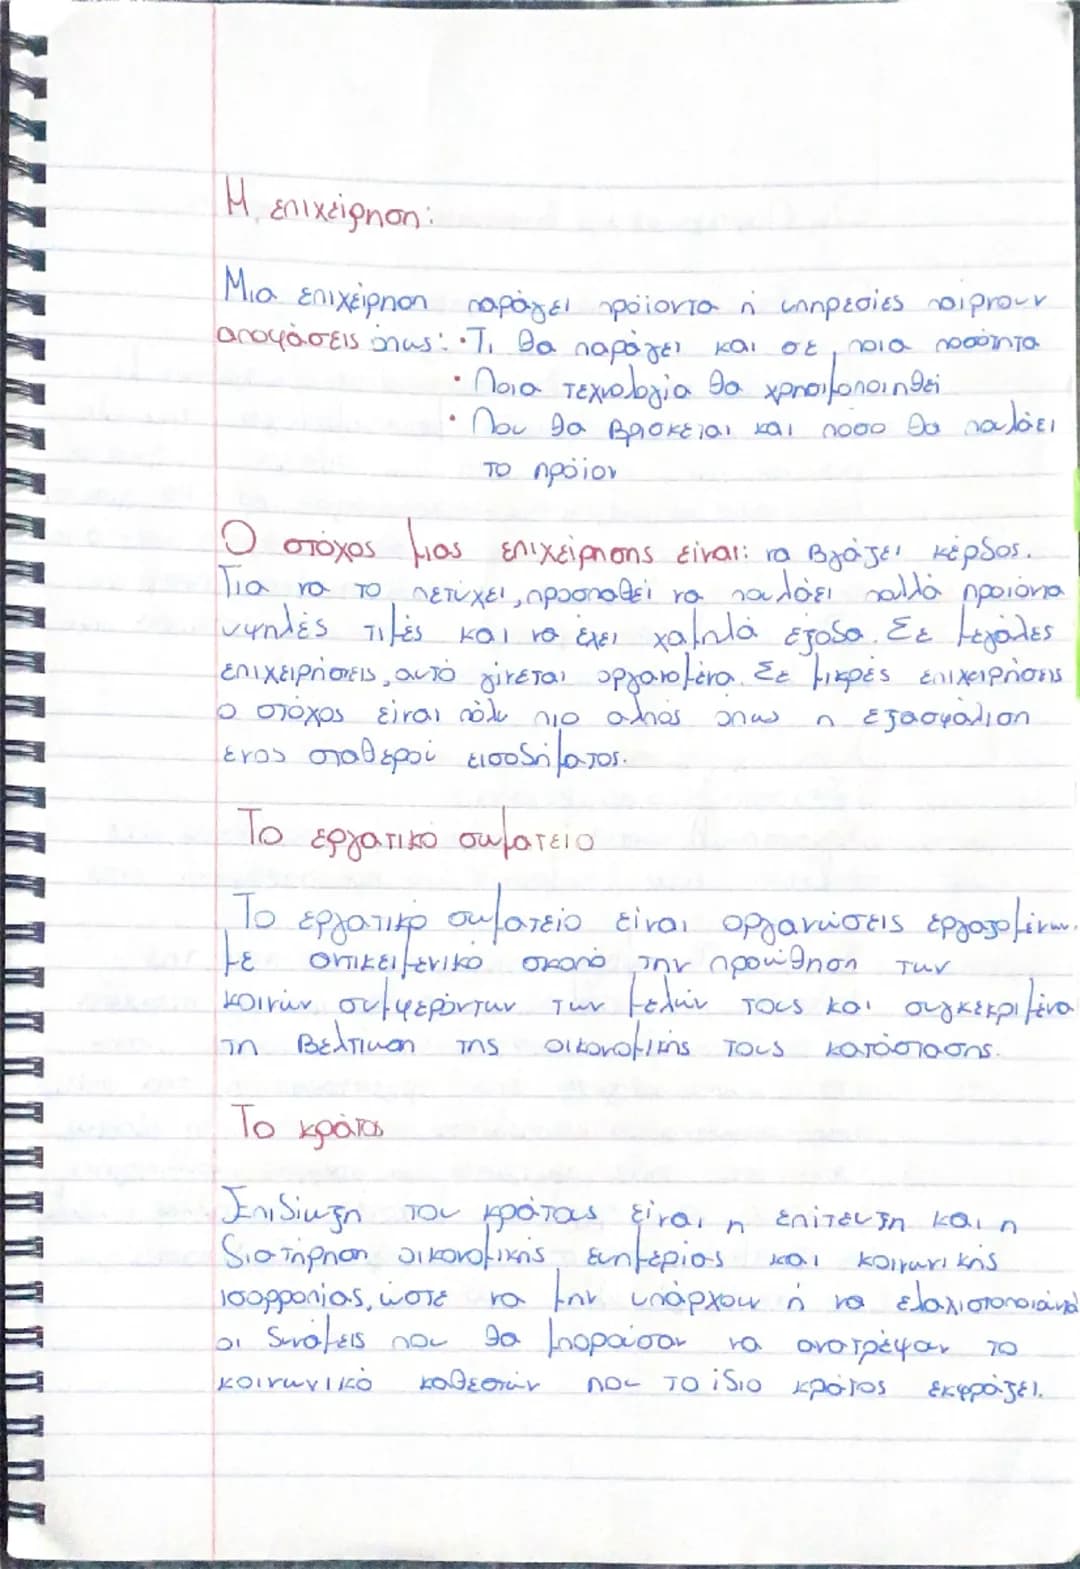 Η επιχείρηση:
Μια επιχείρηση παράγει πρόϊοντα ή υπηρεσίες παίρνουν
αποφάσεις όπως: • Τι θα παράγει και σε ποια ποσότητα
• Ποια τεχνολογία θα χρησιμοποιηθεί
• Που θα βρίσκεται και πόσο θα πουλάει
το πρόϊον
Ο στόχος μιας επιχείρησης είναι: να βγάζει κέρδος.
Για να το πετύχει, προσπαθεί να πουλάει πολλά προιόντα
υψηλές τιμές και να έχει χαμηλά έξοδα. Σε μεγάλες
επιχειρήσεις, αυτό γίνεται οργανομένα. Σε μικρές επιχειρήσεις
ο στόχος είναι πόλυ πιο απλός όπως η εξασφάλιση
ενος σταθερού εισοδήματος.
Το εργατικό σωματείο
Το εργατικό σωματείο είναι οργανώσεις εργαζομένων.
με αντικειμενικό σκοπό την προώθηση των
κοινών συμφερόντων των μελών τους και συγκεκριμένα
τη βελτίωση της οικονομικής τους κατάστασης.
Το κράτος
Επιδίωξη του κράτους είναι η επίτευξη και η
διατήρηση οικονομικής ευημερίας και κοινωνικής
ισορροπίας, ώστε να μην υπάρχουν ή να ελαχιστοποιούνται
οι δυνάμεις που θα μπορούσαν να ανατρέψουν το
κοινωνικό καθεστών που το ίδιο κράτος εκφράζει.